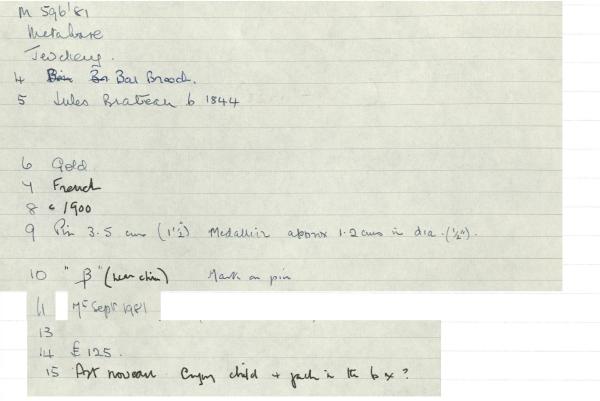 M 596'81
Metalwork
Jewellery.
4 Bar Brooch.
5 Jules Brateau b 1844
6 Gold
7 French
8 c 1900
9 Pin 3.5 cms (1½") Medallion approx 1.2 cms in dia. (½").
10 "β" (near chin) Mark on pin
11 Sept 1981
13
14 £125.
15 Art nouveau child + jack in the box?